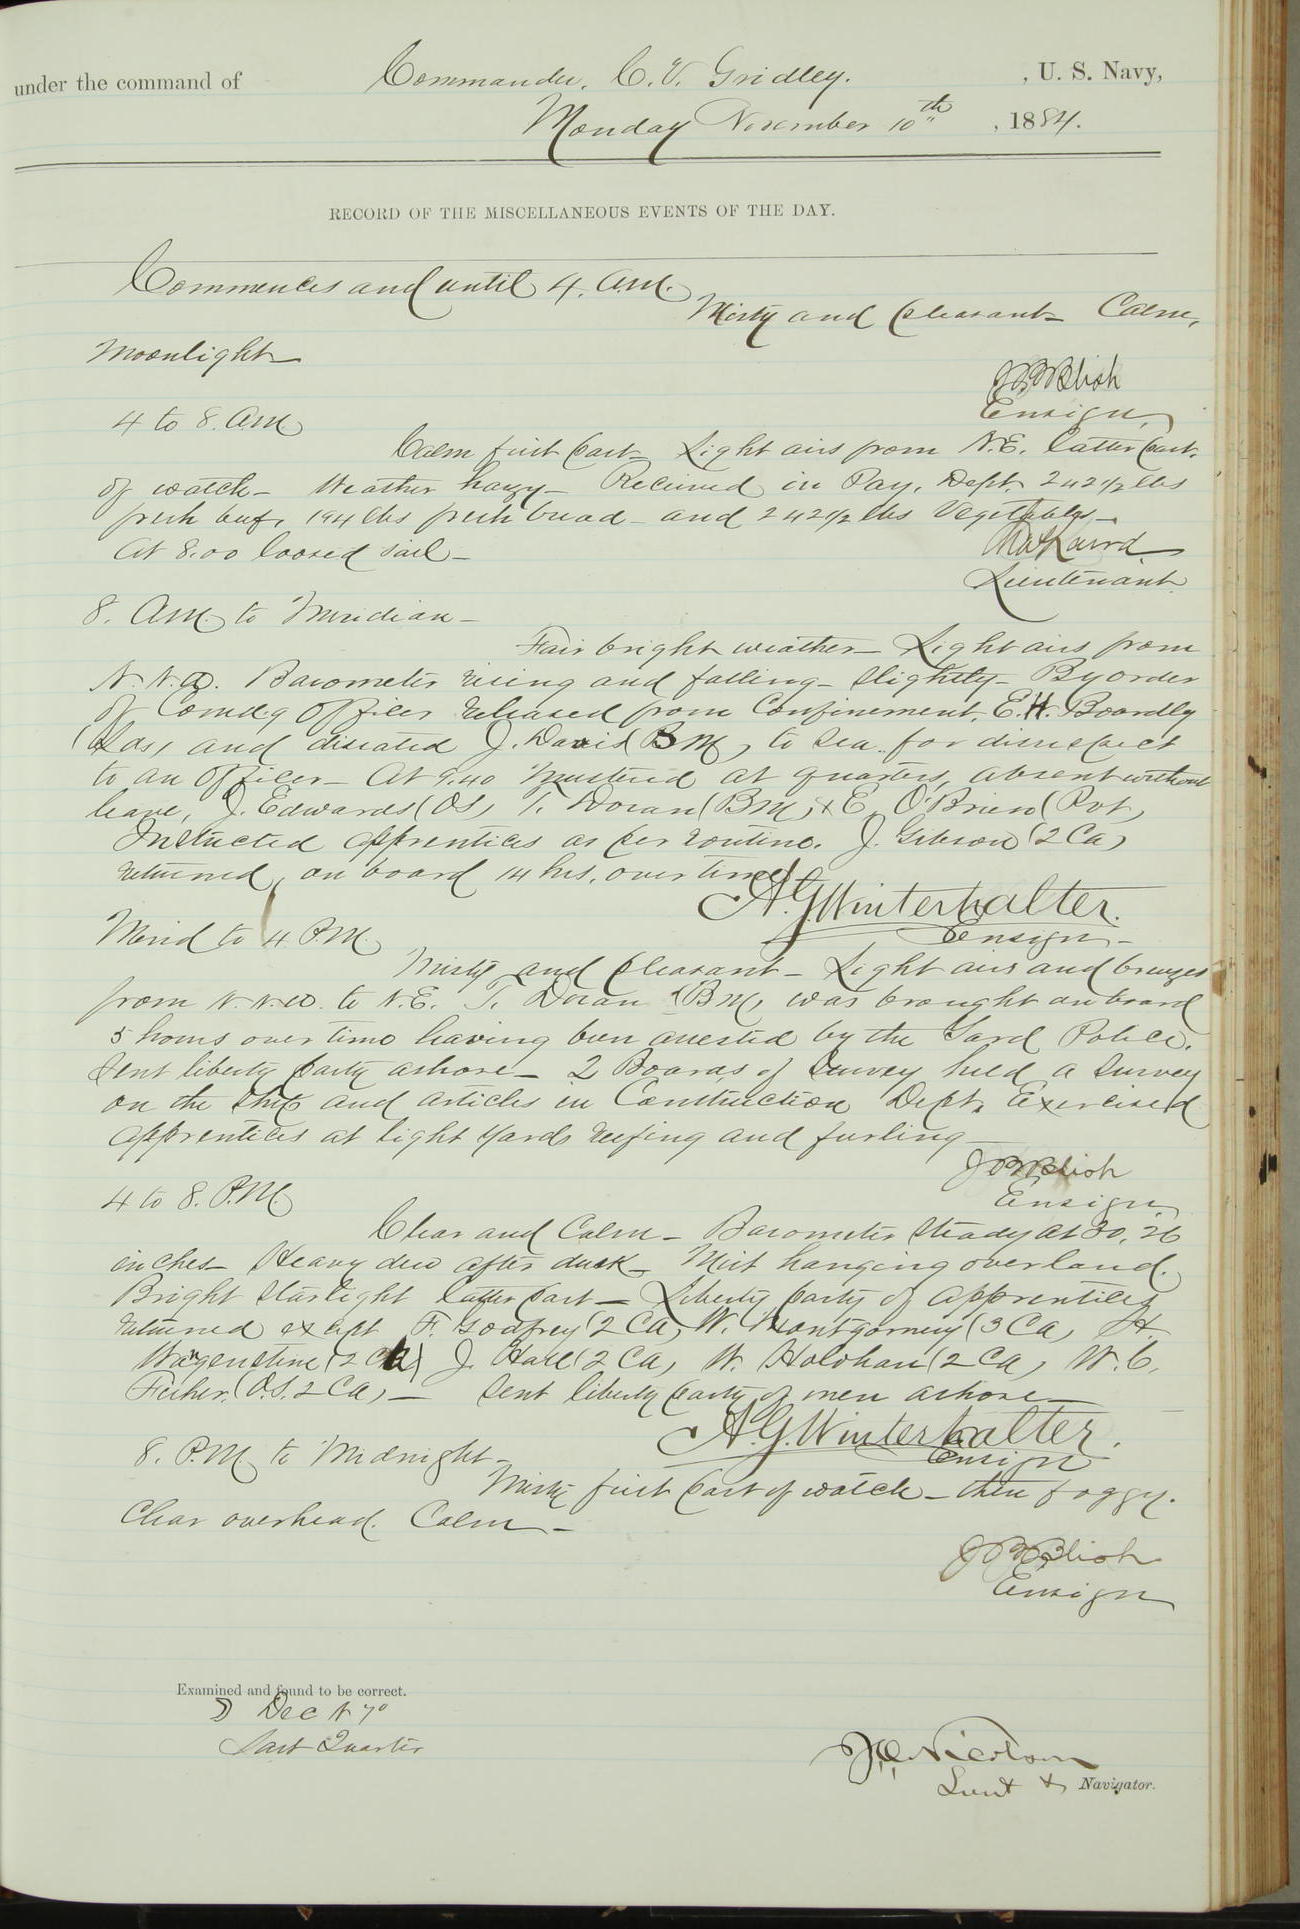 under the command of Commander. C. V. Gridley. , U. S. Navy,
Monday November 10th , 1884.
RECORD OF THE MISCELLANEOUS EVENTS OF THE DAY.
Commences and until 4. A.M.
Misty and pleasant - Calm,
Moonlight
Ensign
4 to 8. A.M.
Calm first part - Light airs from N.E. latter part.
of watch - Weather hazy - Received in Pay. Dept. 242 1/2 lbs
fresh beef, 194 lbs fresh bread - and 242 1/2 lbs Vegetables -
At 8.00 loosed sail -
Lieutenant.
8. A.M. to Meridian -
Fair bright weather - Light airs from
N.N.W. Barometer rising and falling - slightly - By order
of Comdg Officer released from Confinement. E.H. Boardly
(Lds) and J. Davis (B M) to Sea. for disrespect
to an Officer - At 9.40 Mustered at quarters, absent without
leave, J. Edwards (OS) T. Doran (B M) & E. O'Brien (Pvt)
Instructed apprentices as per routine. J. Gibson (2 Ca)
returned on board 14 hrs. over time
A.G. Winterhalter.
Ensign -
Merid to 4 P.M.
Misty and pleasant - Light airs and breezes
from N.N.W. to N.E. T. Doran (B M) was brought on board
5 hours over time having been arrested by the Yard Police.
Sent liberty party ashore - 2 Boards of Survey held a Survey
on the ship and articles in Construction Dept. Exercised
apprentices at light yards reefing and furling -
Ensign
4 to 8. P.M.
Clear and Calm - Barometer steady at 30.26
inches - Heavy dew after dusk - Mist hanging over land.
Bright starlight latter part - Liberty party of apprentices
returned except F. Godfrey (2 Ca) W. Montgomery (3 Ca) H.
Wangenstine (2 Ca) J. Hall (2 Ca) W. Holohan (2 Ca) W. C.
Fisher. (O.S. 2 Ca) - Sent liberty party of men ashore -
A.G. Winterhalter.
Ensign
8. P.M. to Midnight -
Misty first part of watch - then foggy.
Clear overhead. Calm -
Ensign
Examined and found to be correct.
Dec N 7°
Last Quarter
Lieut & Navigator.